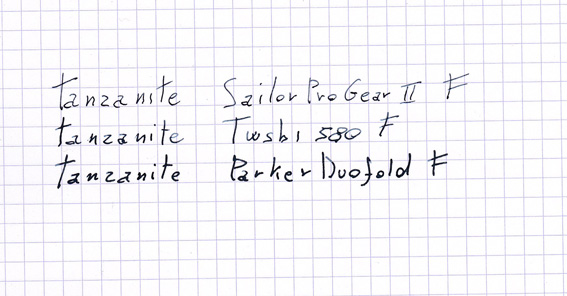 Tanzanite Sailor Pro Gear II F
Tanzanite Twsbi 580 F
Tanzanite Parker Duofold F